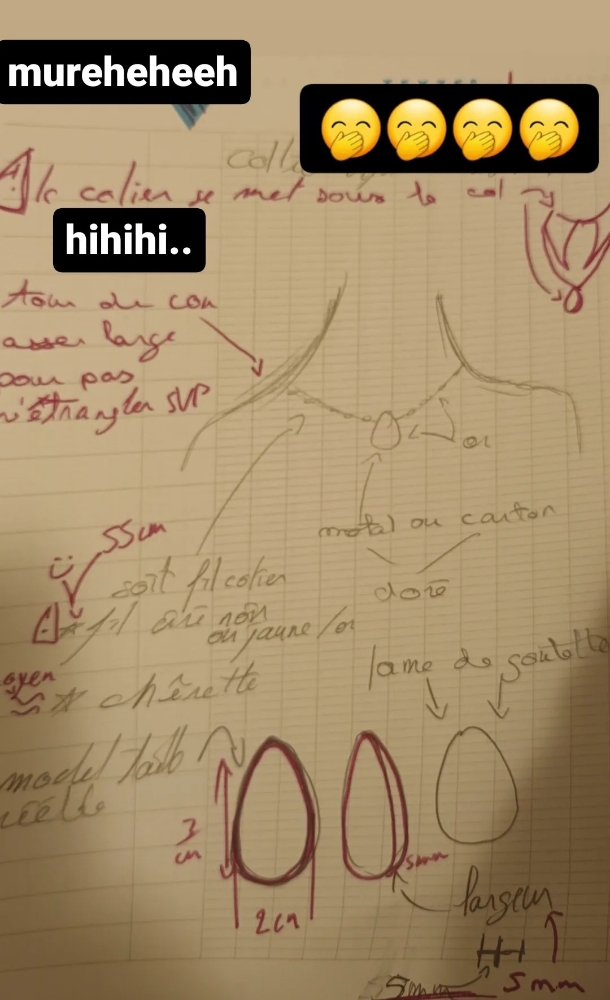 mureheheeh
🤭🤭🤭🤭
le colier se met sous le col
hihihi..
tour de cou
asser large
pour pas
n'étrangler SVP
or
metal ou carton
doré
55cm
soit fil colier
* fil ciré noir
ou jaune/or
* chênette
lame de goutelette
model taille
réelle
3
cm
2cm
5mm
largeur
5mm
5mm